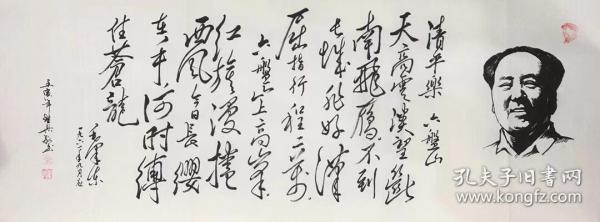 清平樂 六盤山
天高雲淡望斷
南飛雁不到
長城非好漢
屈指行程二萬
六盤山上高峰
紅旗漫捲
西風今日長纓
在手何時縛
住蒼龍
毛澤東
一九六一年九月
壬寅年
孔夫子旧书网
kongfz.com